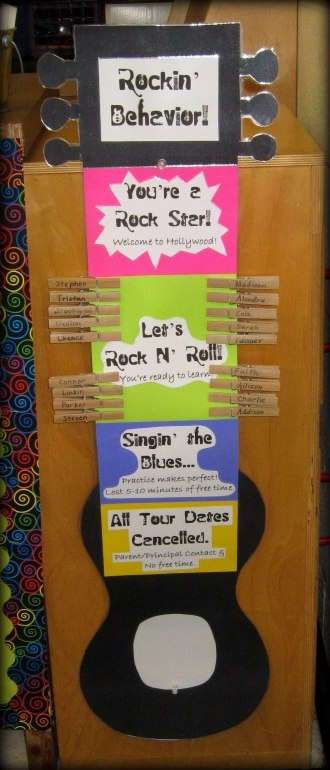 Rockin'
Behavior!
You're a
Rock Star!
Welcome to Hollywood!
Stephen
Tristan
Chance
Madison
Alondra
Cole
Sarah
Tanner
Let's
Rock N' Roll!
You're ready to learn.
Connor
Parker
Steven
Faith
Allison
Charlie
Addison
Singin' the
Blues...
Practice makes perfect!
Lost 5-10 minutes of free time.
All Tour Dates
Cancelled.
Parent/Principal Contact &
No free time.